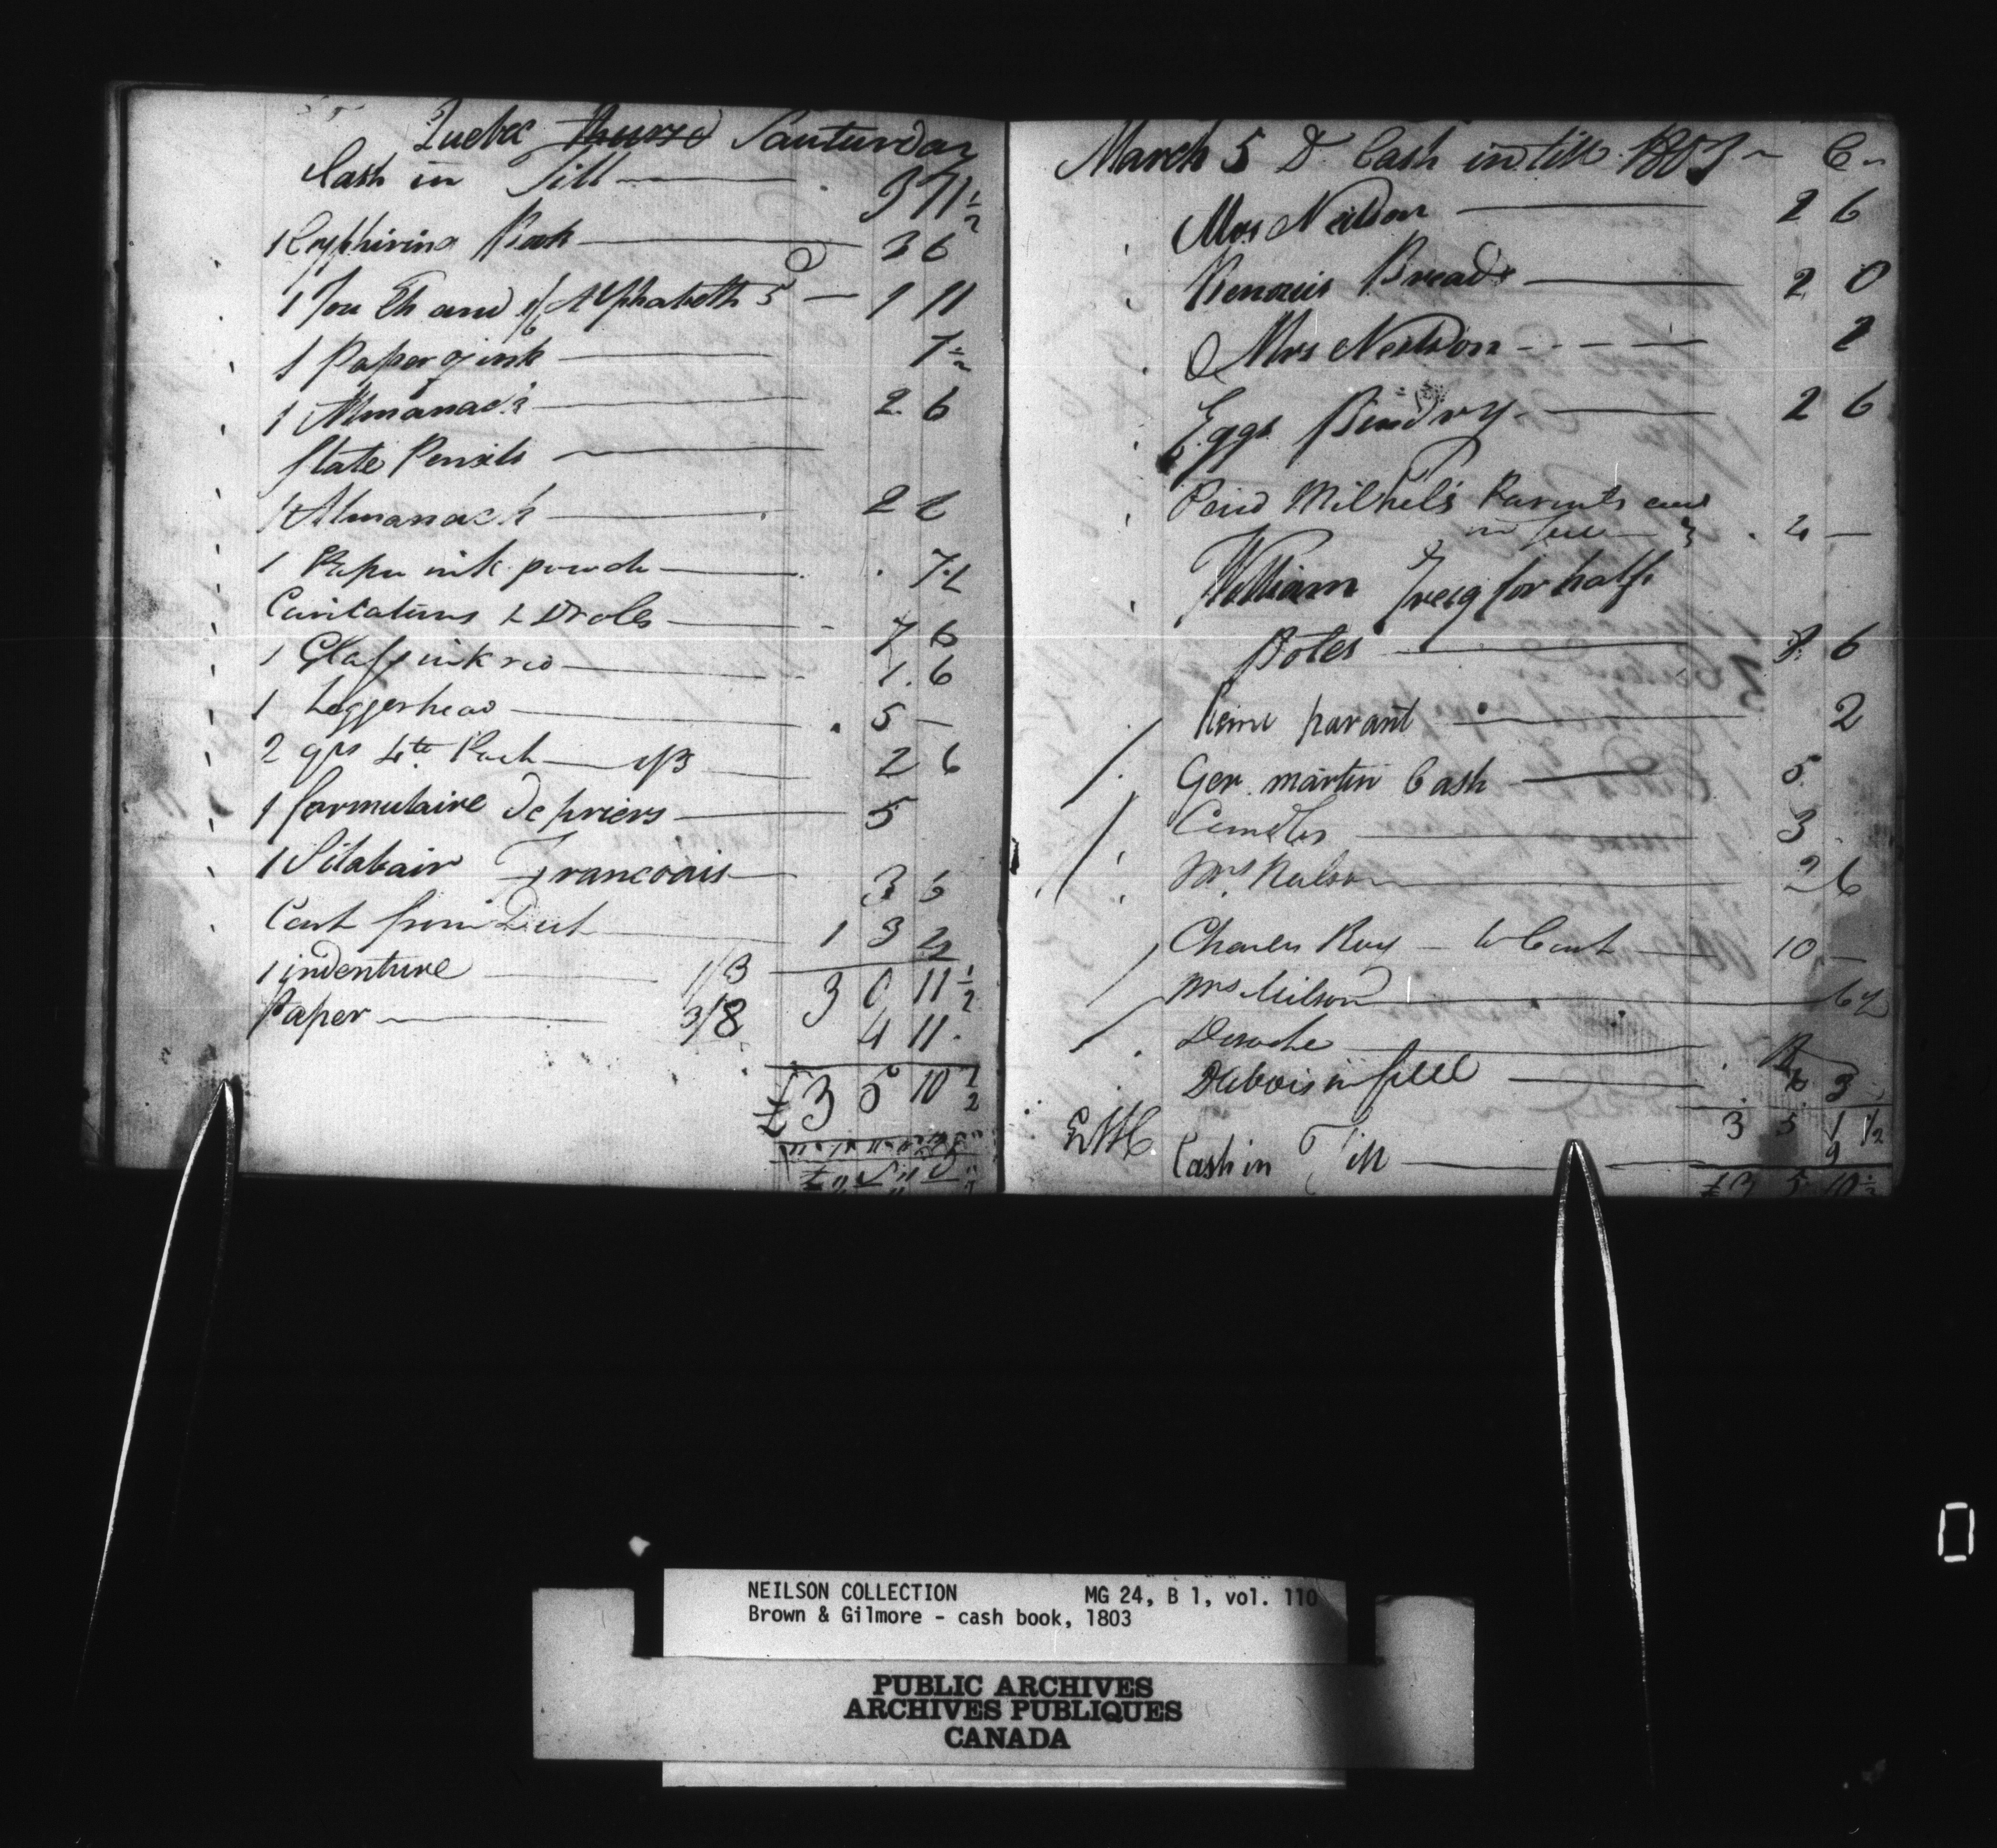 Quebec Thursd Sauturday
Cash in Till — 3 7 11 ½
1 Cyphirind Book — 3 6
1 You Eh and Alphabeth 5 — 1 11
1 Paper of ink — 7 ½
1 Almanack — 2 6
Slate Pensils —
1 Almanack — 2 6
1 Papr ink powder — 7 ½
Caricatures & Droles — 7 6
1 Glass ink red — 1 6
1 Loggerhead — 5 —
2 qrs 4to Post — 1/3 — 2 6
1 formulaire de priers — 5
1 Silabair Francoais — 3
Cash from Debt — 1 3
1 indenture — 1/3 3 0 11 ½
Paper — 3/8 4 11
£ 3 5 10 ½
March 5 D. Cash in till 1803 C
Mrs Neilson — 2 6
Bread — 2 0
Mrs Neilson — 2
Eggs Bindry — 2 6
Paid Parents
in full —
William for half
Botes — 6
parant — 2
Ger. martin Cash — 5
Candles — 3
Mrs Neilson — 2 6
Charles Roy — to Cart — 10 —
Mrs Neilson — 6 ½
Deroche —
Dubois in full — 3
3 5 1 ½
Cash in Till — 9
£ 3 5 10 ½
NEILSON COLLECTION MG 24, B 1, vol. 110
Brown & Gilmore - cash book, 1803
PUBLIC ARCHIVES
ARCHIVES PUBLIQUES
CANADA